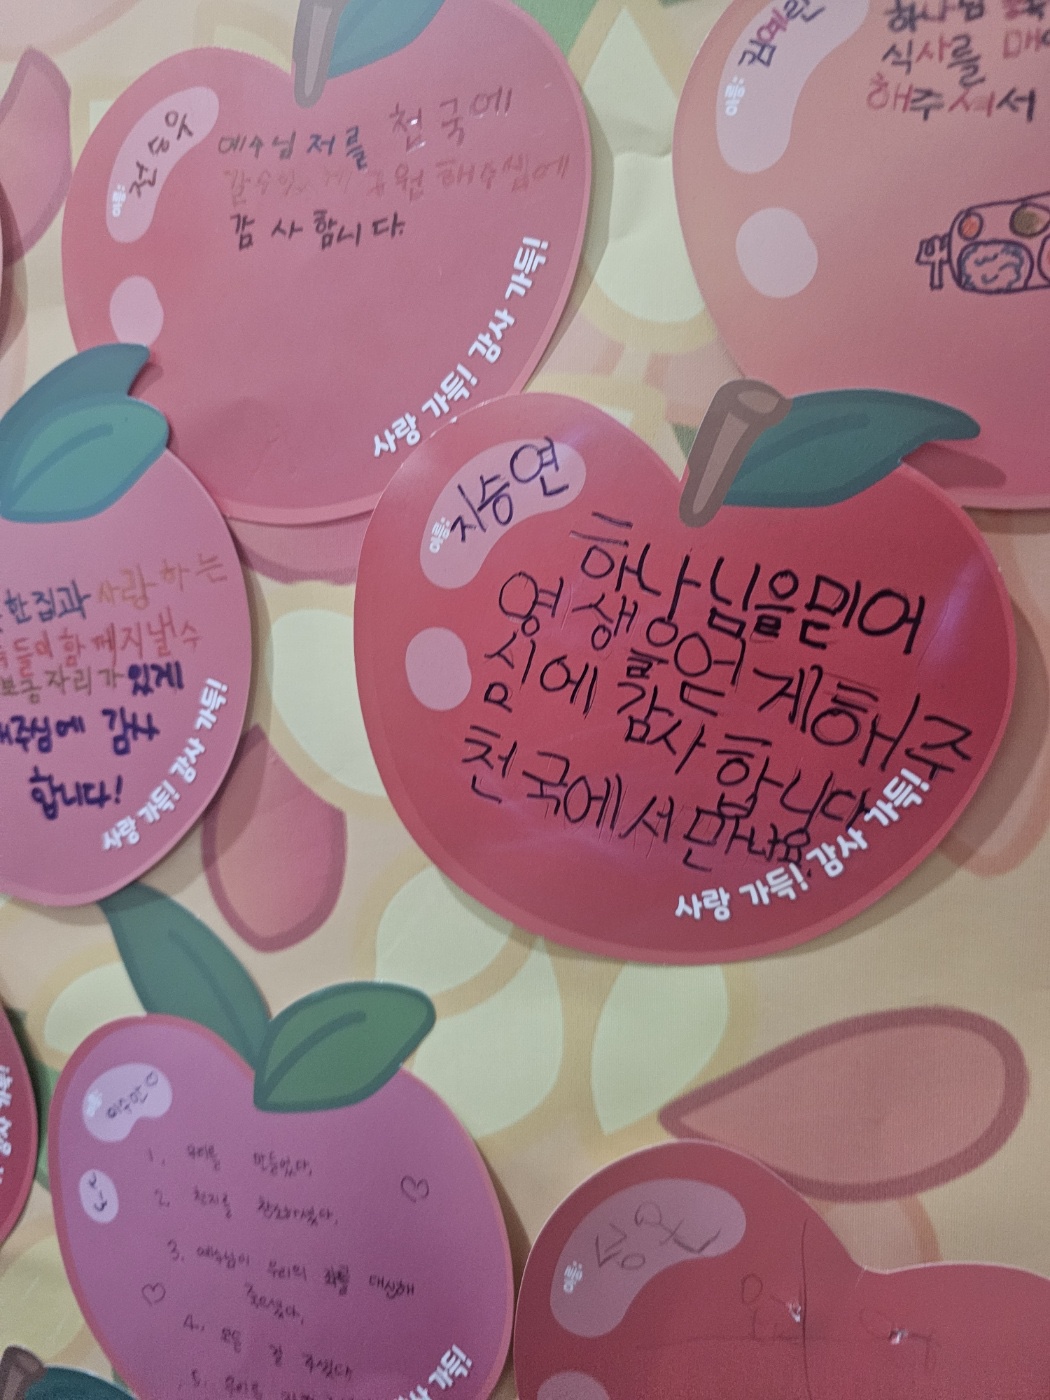 이름: 전승우
예수님 저를 천국에
구원 해주심에
감사합니다.
사랑 가득! 감사 가득!
이름: 김예린
하나님
식사를
해주셔서
한집과 사랑하는
들의 함께 지낼 수
보금자리가 있게
해주심에 감사
합니다!
사랑 가득! 감사 가득!
이름: 지승연
하나님을 믿어
영생을 얻게 해주
심에 감사하니다
천국에서 만나요
사랑 가득! 감사 가득!
이름: 이수안
1. 우리를 만들었다,
2. 천지를 창조하셨다,
3. 예수님이 우리의 죄를 대신해
죽으셨다,
4. 모든 걸 주셨다
5. 우리를
감사 가득!
이름: